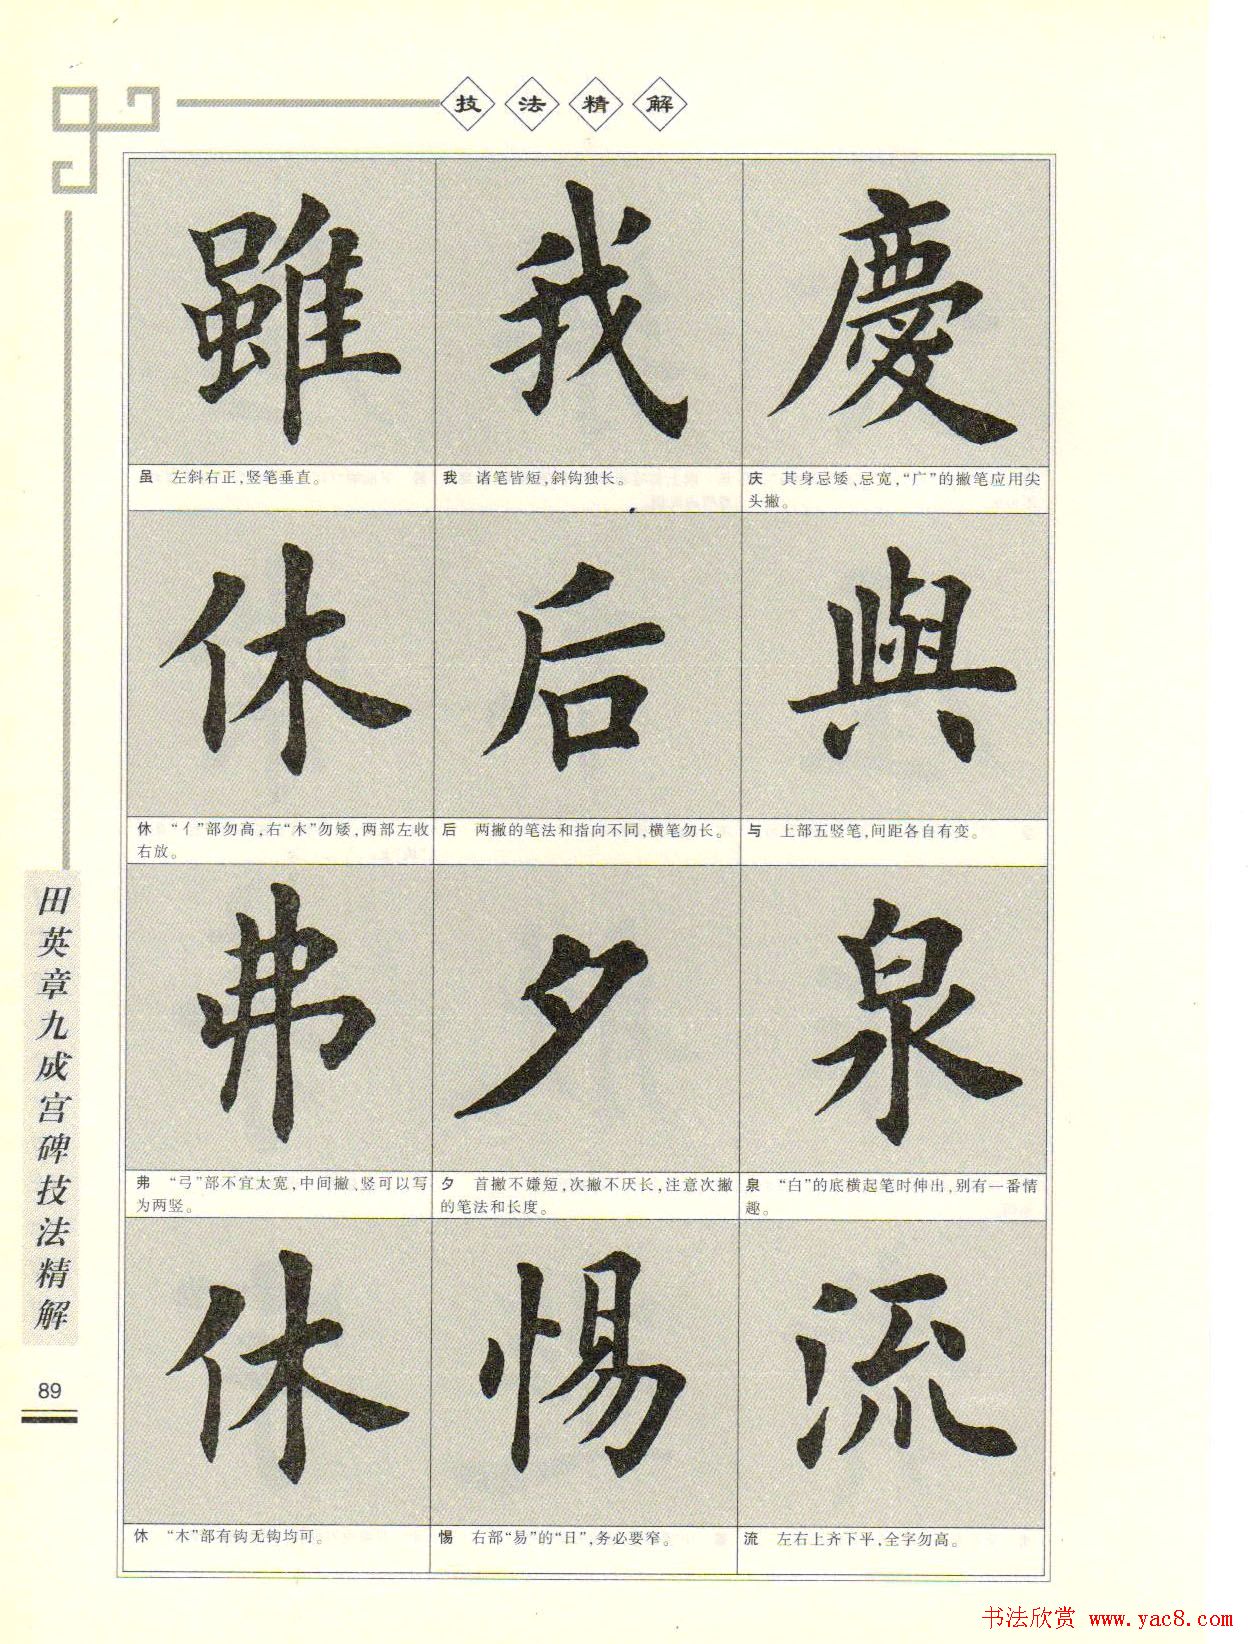 技法精解
雖 我 慶
虽 左斜右正,竖笔垂直。
我 诸笔皆短,斜钩独长。
庆 其身忌矮、忌宽,“广”的撇笔应用尖
头撇。
休 后 與
休 “亻”部勿高,右“木”勿矮,两部左收
右放。
后 两撇的笔法和指向不同,横笔勿长。
与 上部五竖笔,间距各自有变。
弗 夕 泉
弗 “弓”部不宜太宽,中间撇、竖可以写
为两竖。
夕 首撇不嫌短,次撇不厌长,注意次撇
的笔法和长度。
泉 “白”的底横起笔时伸出,别有一番情
趣。
休 惕 流
休 “木”部有钩无钩均可。
惕 右部“易”的“日”,务必要窄。
流 左右上齐下平,全字勿高。
田英章九成宫碑技法精解
89
书法欣赏 www.yac8.com